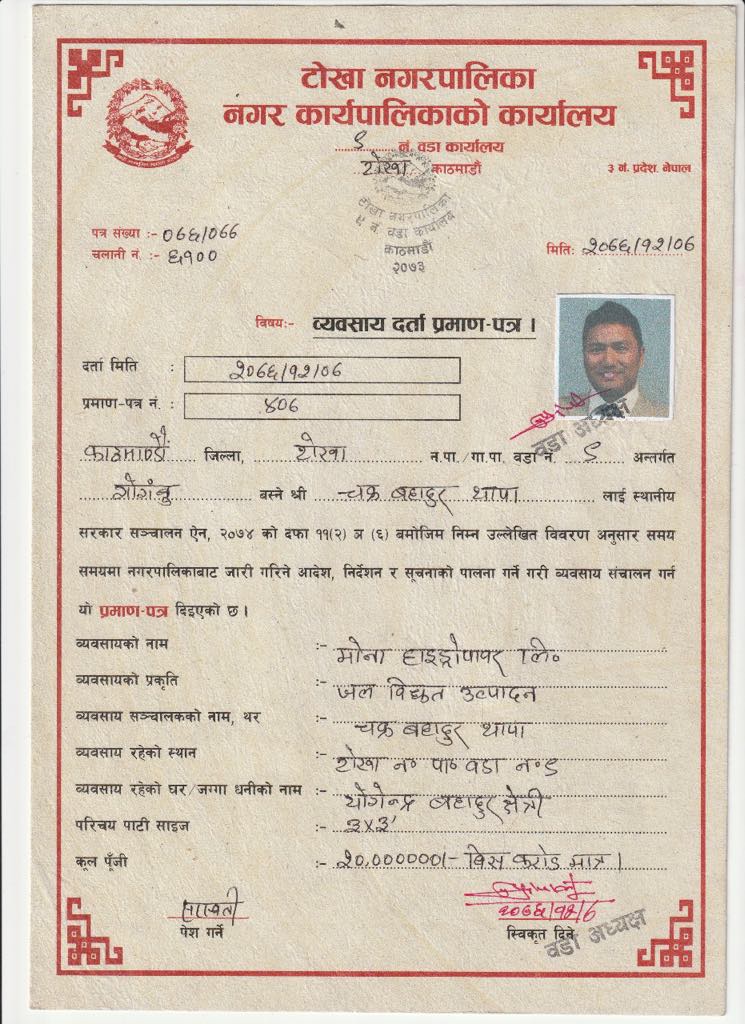 टोखा नगरपालिका
नगर कार्यपालिकाको कार्यालय
९ नं. वडा कार्यालय
टोखा काठमाडौं
३ नं. प्रदेश, नेपाल
टोखा नगरपालिका
९ नं. वडा कार्यालय
काठमाडौं
२०७३
पत्र संख्या :- ०७६/०७७
चलानी नं. :- ६१००
मिति: २०७६/१२/०७
विषय:- व्यवसाय दर्ता प्रमाण-पत्र ।
दर्ता मिति : २०७६/१२/०७
प्रमाण-पत्र नं. : ४०७
वडा अध्यक्ष
काठमाण्डौं जिल्ला, टोखा न.पा./गा.पा. वडा नं. ९ अन्तर्गत
गोंगबु बस्ने श्री चक्र बहादुर थापा लाई स्थानीय
सरकार सञ्चालन ऐन, २०७४ को दफा ११(२) ञ (६) बमोजिम निम्न उल्लेखित विवरण अनुसार समय
समयमा नगरपालिकाबाट जारी गरिने आदेश, निर्देशन र सूचनाको पालना गर्ने गरी व्यवसाय संचालन गर्न
यो प्रमाण-पत्र दिइएको छ ।
व्यवसायको नाम :- मोना हाइड्रोपावर लि॰
व्यवसायको प्रकृति :- जल विद्युत उत्पादन
व्यवसाय सञ्चालकको नाम, थर :- चक्र बहादुर थापा
व्यवसाय रहेको स्थान :- टोखा न॰ पा॰ वडा न॰ ९
व्यवसाय रहेको घर/जग्गा धनीको नाम :- योगेन्द्र बहादुर क्षेत्री
परिचय पाटी साइज :- ३x३'
कूल पूँजी :- २०,००००००।- बिस करोड मात्र ।
२०७६/१२/७
पेश गर्ने
स्विकृत दिने
वडा अध्यक्ष